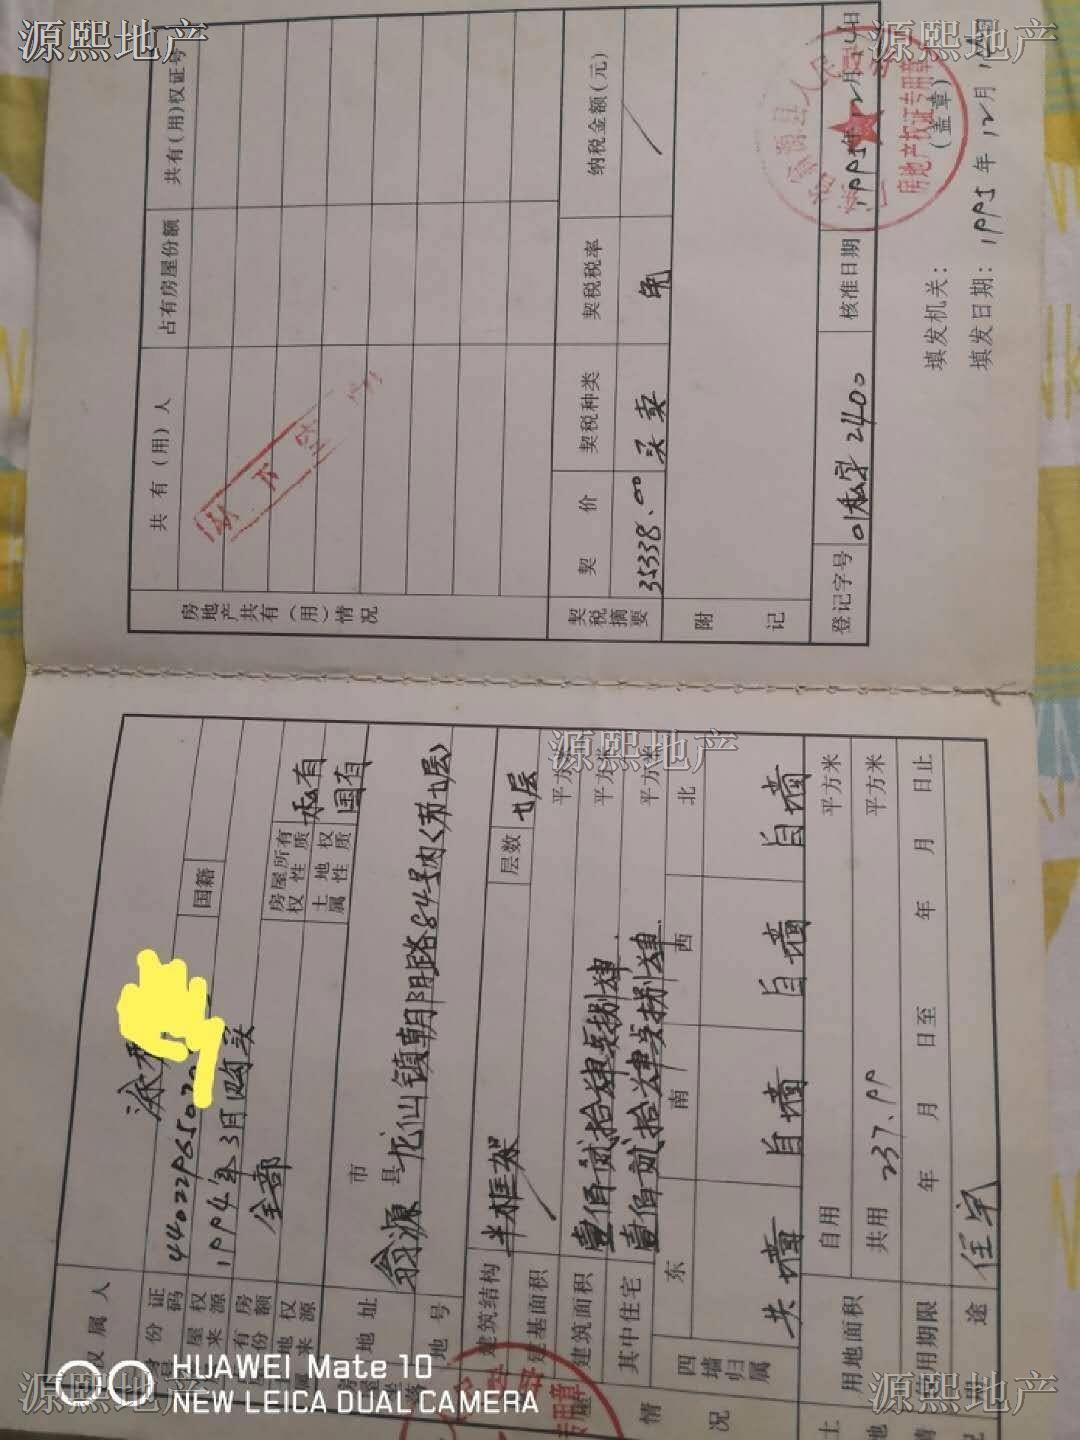 源熙地产
源熙地产
权属人
涂
身份证号码
4402296502
国籍
房屋权来源
1994年3月购买
房屋所有权性质
私有
占有房屋份额
全部
土地权属性质
国有
房地坐落
地址
市
县
翁源
龙仙镇朝阳路84号内(第七层)
地号
建筑结构
半框架
层数
七层
建基面积
平方米
建筑面积
壹佰贰拾肆点捌肆
平方米
其中住宅
壹佰贰拾肆点捌肆
平方米
四墙归属
东
南
西
北
共墙
自墙
自墙
自墙
情况
用地面积
自用
平方米
共用
237.99
平方米
使用期限
年 月 日至 年 月 日止
用途
住宅
专用章
源熙地产
房地产共有(用)情况
共有(用)人
占有房屋份额
共有(用)权证号
以下空
契税摘要
契价
契税种类
契税税率
纳税金额(元)
35338.00
买卖
免
附记
登记字号
01私字2400
核准日期
1995年12月14日
填发机关:
(盖章)
填发日期: 1995年12月14日
广东省翁源县人民政府
房地产权证专用章
源熙地产
源熙地产
HUAWEI Mate 10
NEW LEICA DUAL CAMERA